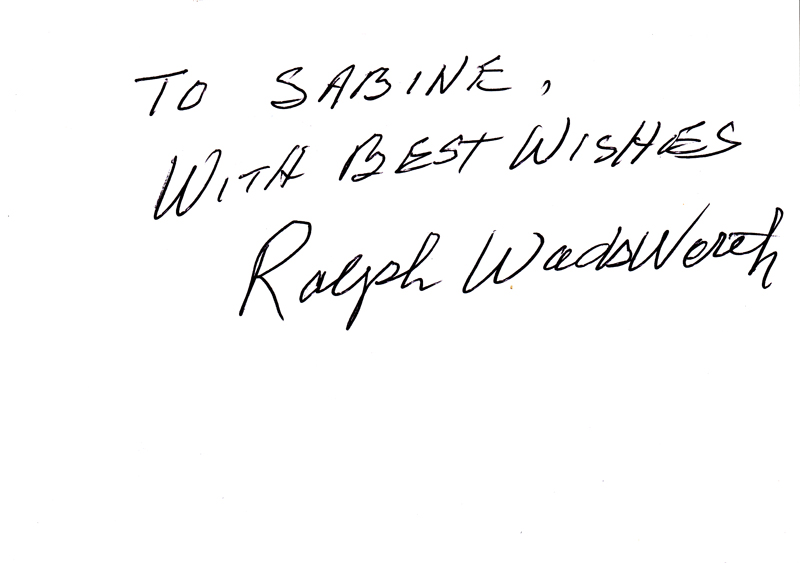 TO SABINE,
WITH BEST WISHES
Ralph WadsWorth